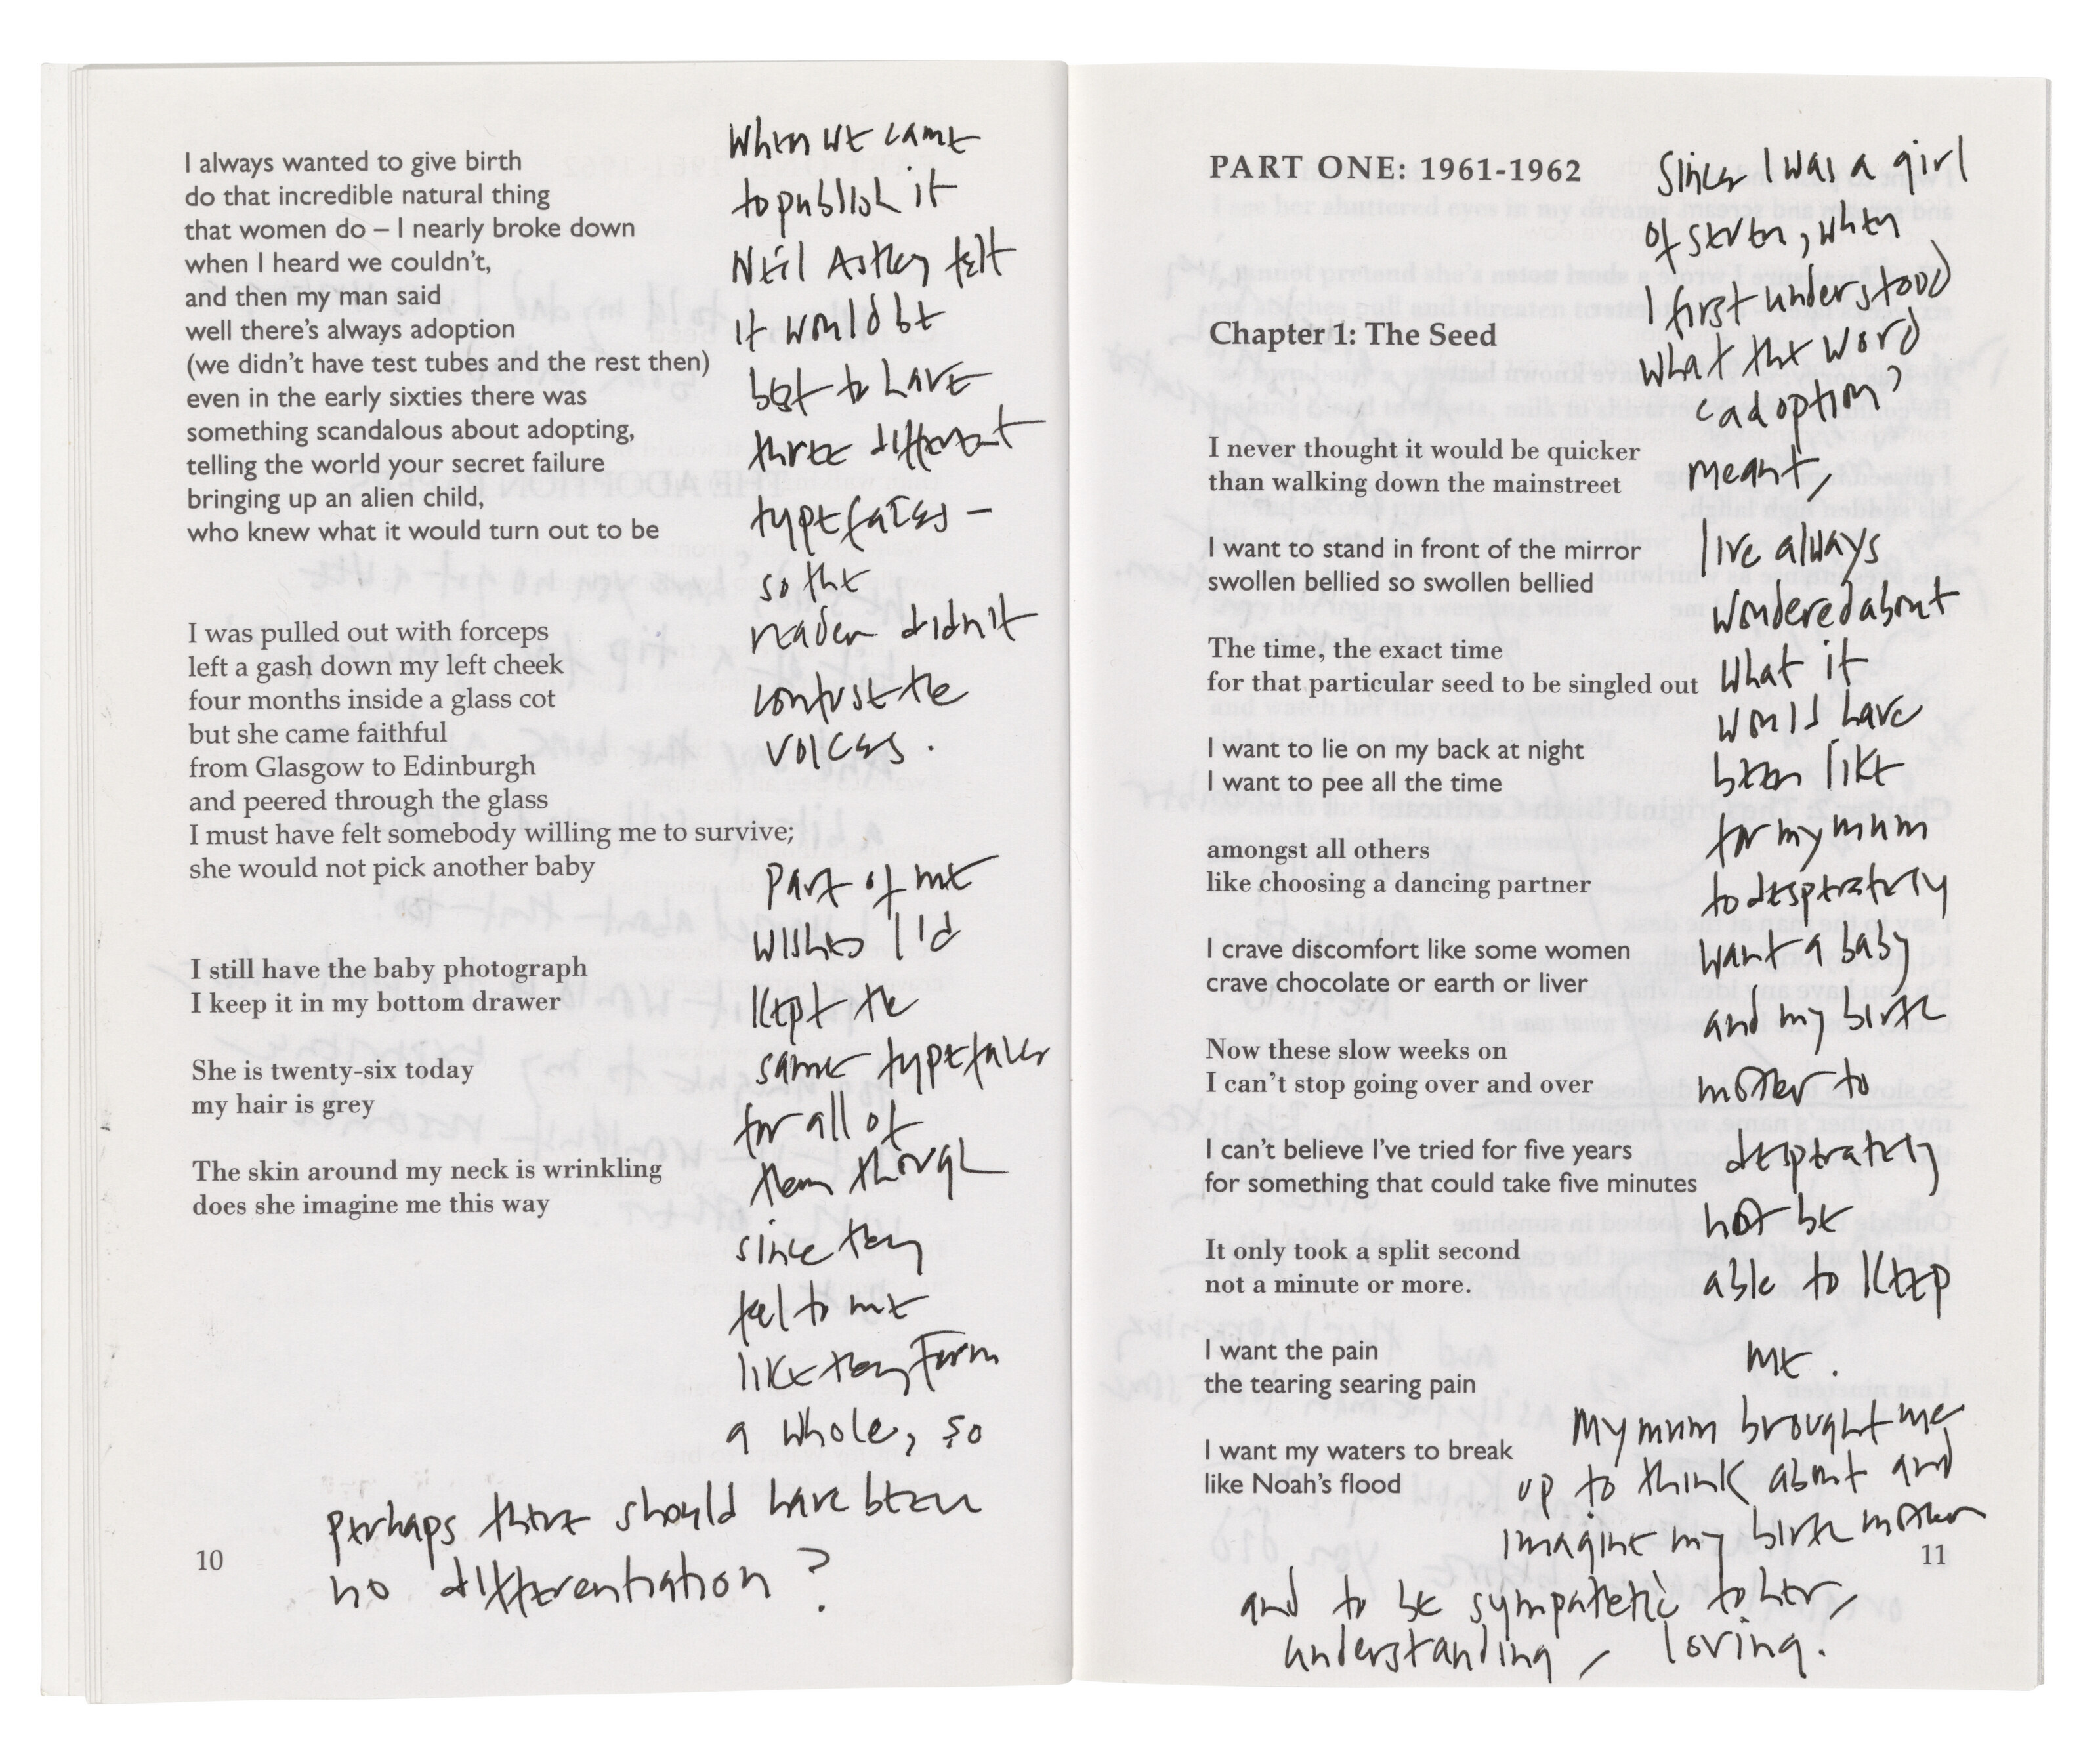 I always wanted to give birth
do that incredible natural thing
that women do – I nearly broke down
when I heard we couldn't,
and then my man said
well there's always adoption
(we didn't have test tubes and the rest then)
even in the early sixties there was
something scandalous about adopting,
telling the world your secret failure
bringing up an alien child,
who knew what it would turn out to be
I was pulled out with forceps
left a gash down my left cheek
four months inside a glass cot
but she came faithful
from Glasgow to Edinburgh
and peered through the glass
I must have felt somebody willing me to survive;
she would not pick another baby
I still have the baby photograph
I keep it in my bottom drawer
She is twenty-six today
my hair is grey
The skin around my neck is wrinkling
does she imagine me this way
When we came
to publish it
Neil Astley felt
it would be
best to have
three different
typefaces –
so the
reader didn't
confuse the
voices.
Part of me
wishes I'd
kept the
same typefaces
for all of
them though
since they
feel to me
like they form
a whole, so
perhaps there should have been
no differentiation?
10
PART ONE: 1961-1962
Chapter 1: The Seed
I never thought it would be quicker
than walking down the mainstreet
I want to stand in front of the mirror
swollen bellied so swollen bellied
The time, the exact time
for that particular seed to be singled out
I want to lie on my back at night
I want to pee all the time
amongst all others
like choosing a dancing partner
I crave discomfort like some women
crave chocolate or earth or liver
Now these slow weeks on
I can't stop going over and over
I can't believe I've tried for five years
for something that could take five minutes
It only took a split second
not a minute or more.
I want the pain
the tearing searing pain
I want my waters to break
like Noah's flood
Since I was a girl
of seven, when
I first understood
what the word
'adoption'
meant,
I've always
wondered about
what it
would have
been like
for my mum
to desperately
want a baby
and my birth
mother to
desperately
not be
able to keep
me.
My mum brought me
up to think about and
imagine my birth mother
and to be sympathetic to her,
understanding, loving.
11